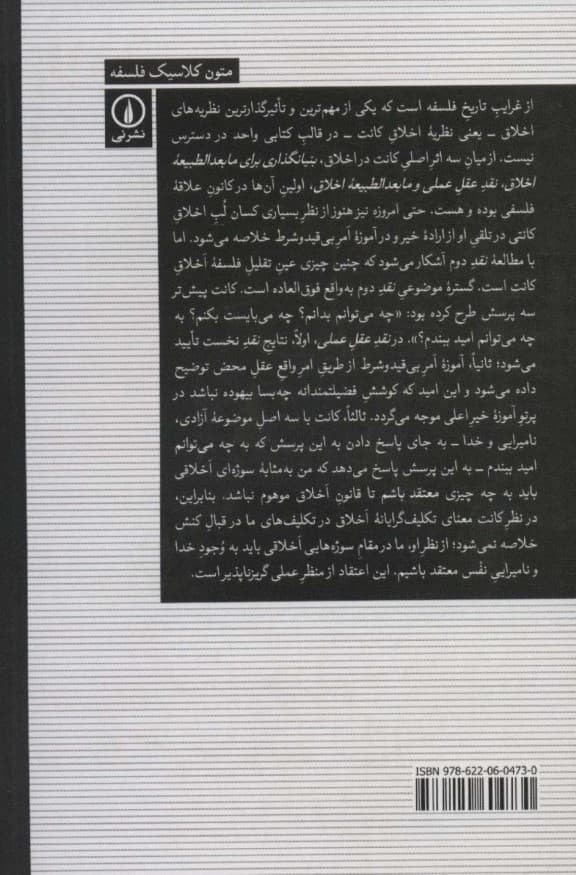 متون کلاسیک فلسفه
نشرنی
از غرایبِ تاریخِ فلسفه است که یکی از مهم‌ترین و تأثیرگذارترین نظریه‌های
اخلاق ــ یعنی نظریهٔ اخلاقِ کانت ــ در قالبِ کتابی واحد در دسترس
نیست. از میانِ سه اثرِ اصلیِ کانت در اخلاق، بنیانگذاری برای مابعدالطبیعهٔ
اخلاق، نقدِ عقلِ عملی و مابعدالطبیعهٔ اخلاق، اولینِ آن‌ها در کانونِ علاقهٔ
فلسفی بوده و هست. حتی امروزه نیز هنوز از نظرِ بسیاری کسان لُبِ اخلاقِ
کانتی در تلقی او از ارادهٔ خیر و در آموزهٔ امرِ بی‌قیدوشرط خلاصه می‌شود. اما
با مطالعهٔ نقدِ دوم آشکار می‌شود که چنین چیزی عینِ تقلیلِ فلسفهٔ اخلاقِ
کانت است. گسترهٔ موضوعیِ نقدِ دوم به‌واقع فوق‌العاده است. کانت پیش‌تر
سه پرسش طرح کرده بود: «چه می‌توانم بدانم؟ چه می‌بایست بکنم؟ به
چه می‌توانم امید ببندم؟». در نقدِ عقلِ عملی، اولاً، نتایجِ نقدِ نخست تأیید
می‌شود؛ ثانیاً، آموزهٔ امرِ بی‌قیدوشرط از طریقِ امرِ واقعِ عقلِ محض توضیح
داده می‌شود و این امید که کوششِ فضیلتمندانه چه‌بسا بیهوده نباشد در
پرتوِ آموزهٔ خیرِ اعلی موجه می‌گردد. ثالثاً، کانت با سه اصلِ موضوعهٔ آزادی،
نامیرایی و خدا ــ به جای پاسخ دادن به این پرسش که به چه می‌توانم
امید ببندم ــ به این پرسش پاسخ می‌دهد که من به‌مثابهٔ سوژه‌ای اخلاقی
باید به چه چیزی معتقد باشم تا قانونِ اخلاق موهوم نباشد. بنابراین،
در نظرِ کانت معنای تکلیف‌گرایانهٔ اخلاق در تکلیف‌های ما در قبالِ کنش
خلاصه نمی‌شود؛ از نظرِ او، ما در مقامِ سوژه‌هایی اخلاقی باید به وُجود خدا
و نامیراییِ نفْس معتقد باشیم. این اعتقاد از منظرِ عملی گریزناپذیر است.
ISBN 978-622-06-0473-0